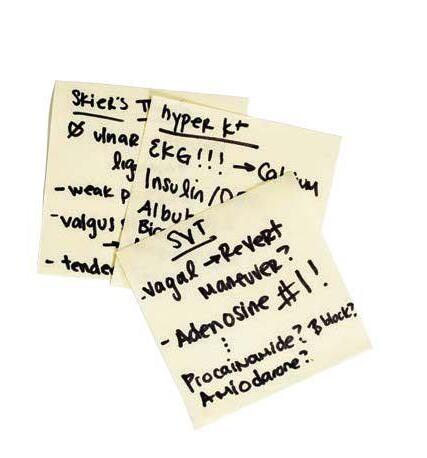 Skier's T
Ø ulnar
lig
- weak p
- valgus
→
- tender
hyper K+
EKG!!! → Calcium
Insulin/D
Albut
Bi
SVT
- vagal → Revert
maneuver?
- Adenosine #1!
⋮
Procainamide? B block?
Amiodarone?